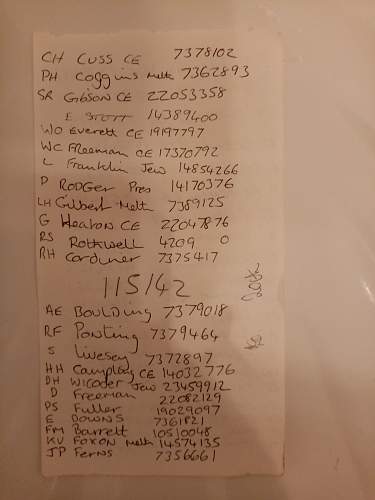 CH Cuss CE 7378102
PH Coggins Meth 7362893
SR Gibson CE 22053358
E Stott 14389400
WO Everett CE 19197797
WC Freeman CE 17370792
L Franklin Jew 14854266
D Rodger Pres 14170376
LH Gilbert Meth 7389125
G Heaton CE 22047876
RS Rothwell 4209 0
RH Cordiner 7375417
115/42
AE Boulding 7379018
RF Ponting 7379464
S Livesey 7372897
HH CE 14032776
DH Jew 23459912
D Freeman 22082129
PS Fuller 19029097
E Downs 7361821
FM Barrett 10510048
KV Foxon Meth 14574135
JP Ferns 7356661